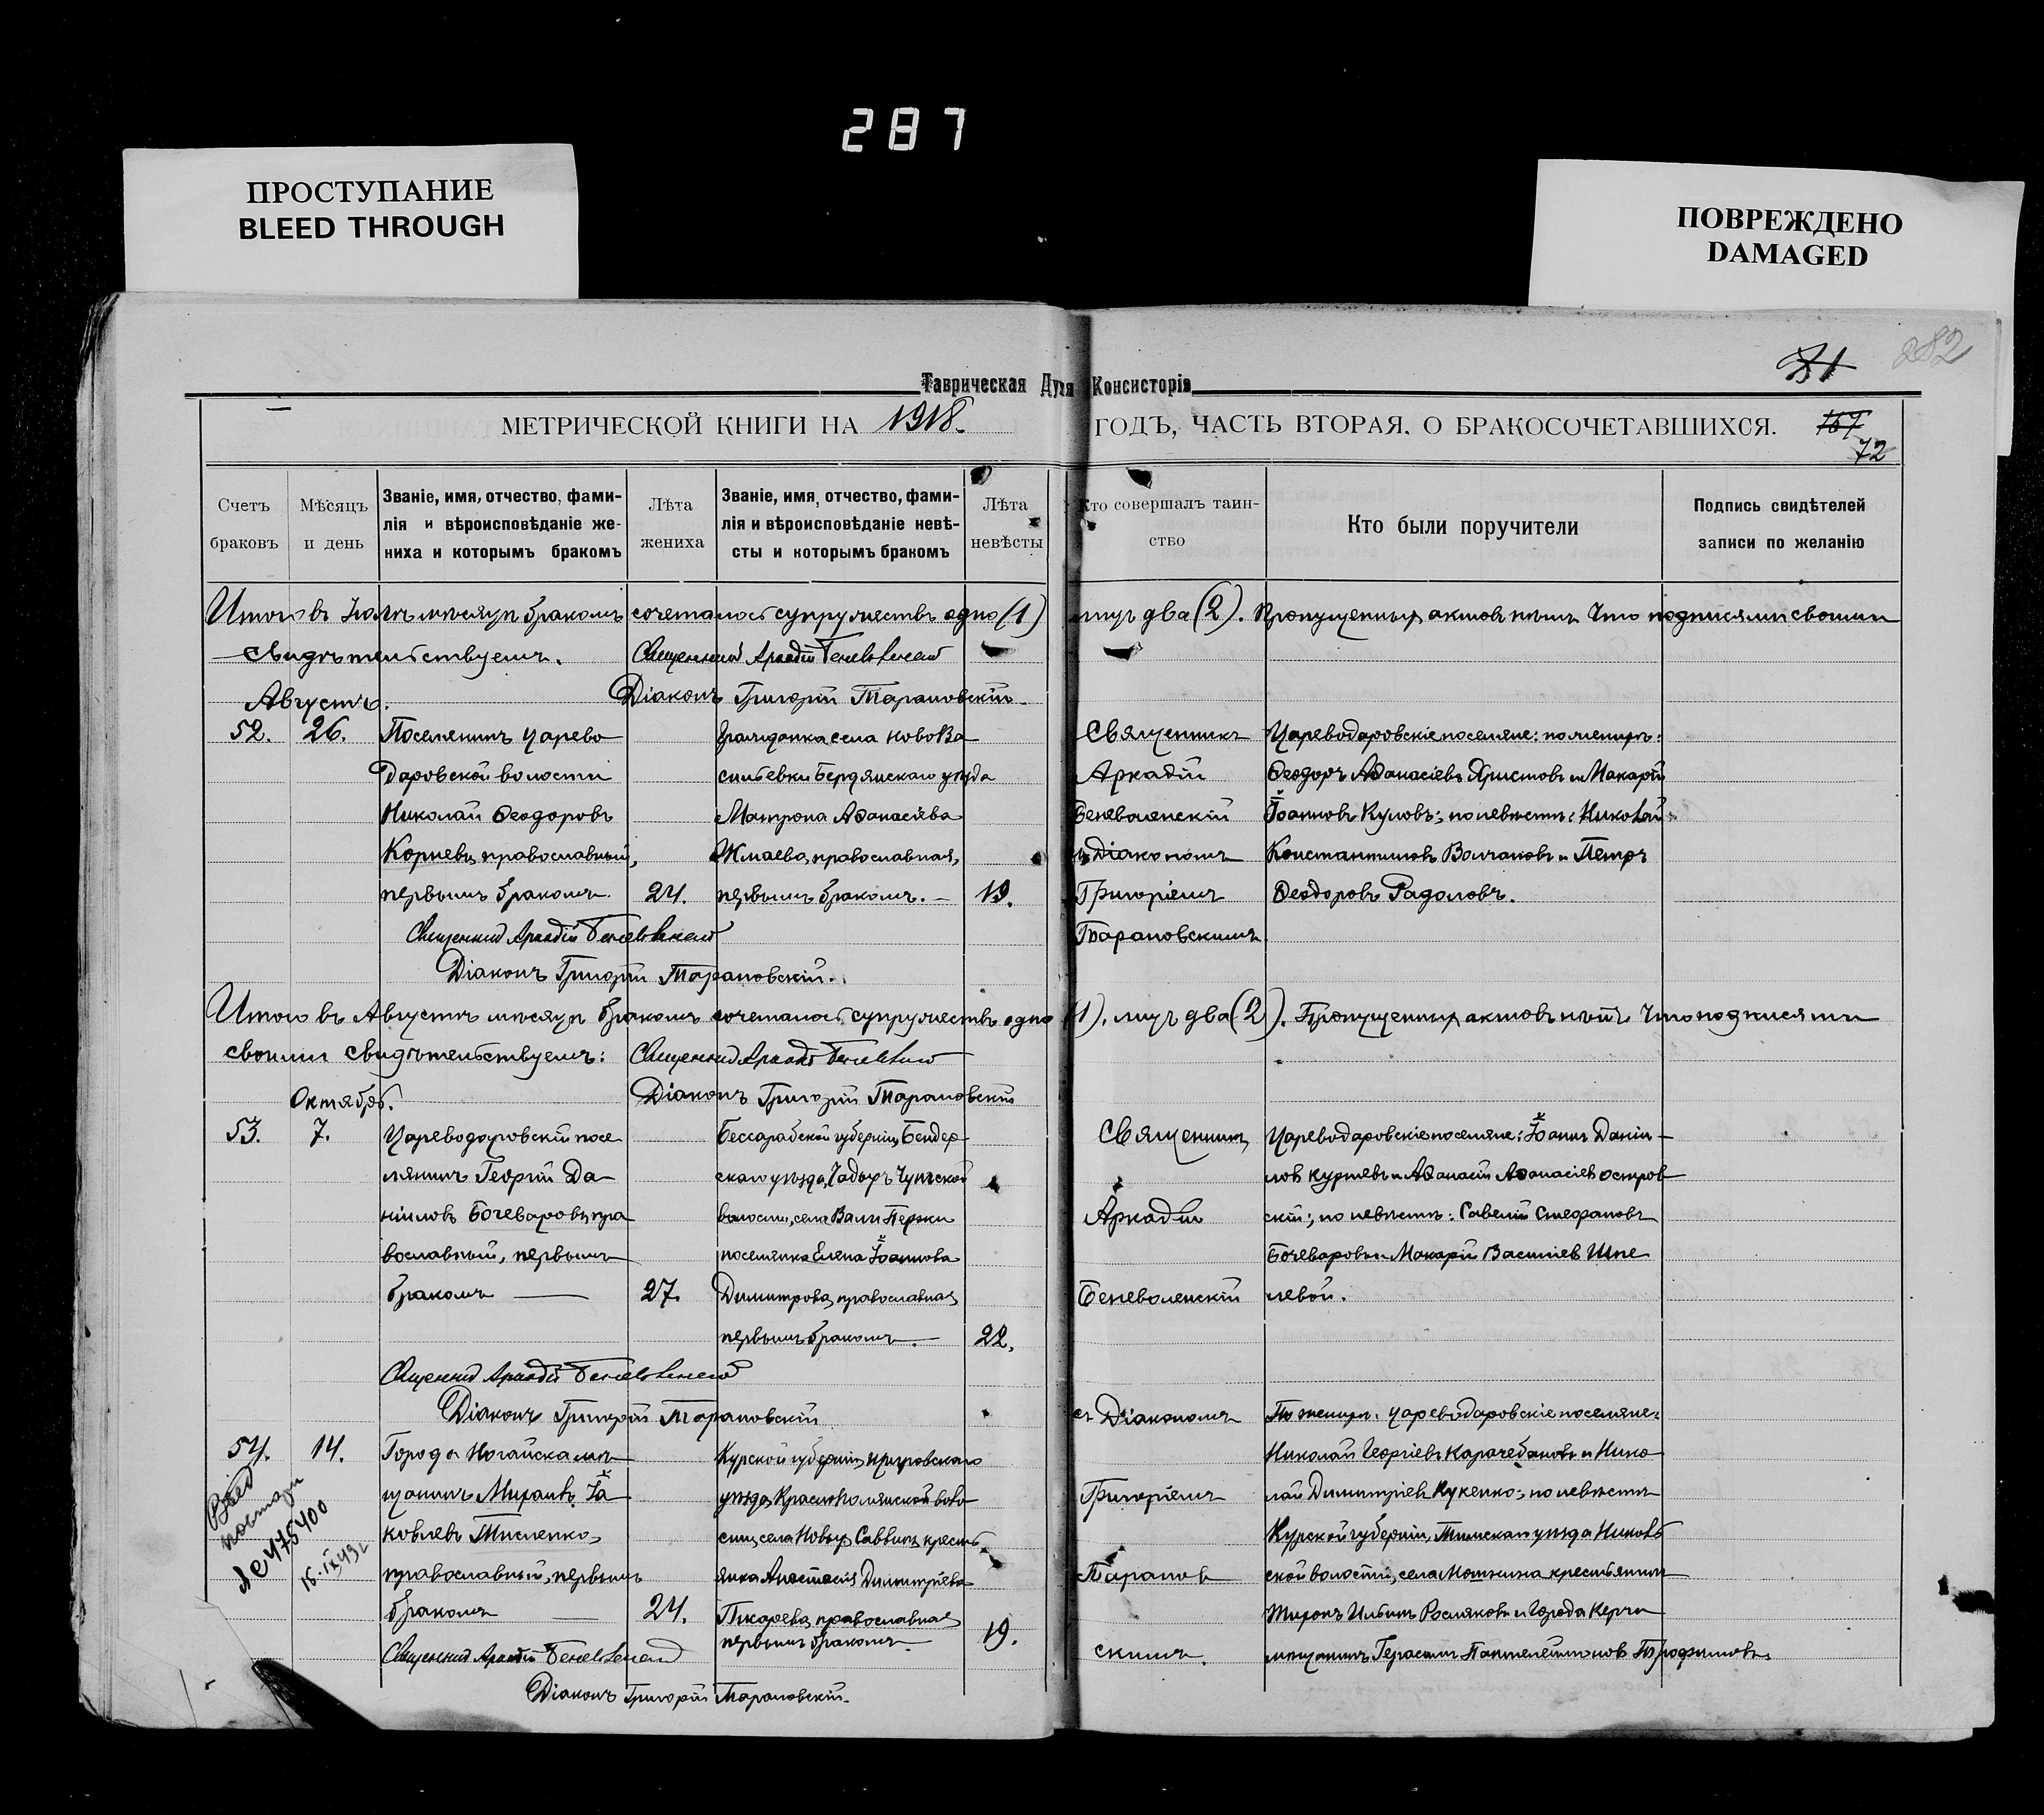 287
ПРОСТУПАНИЕ
BLEED THROUGH
ПОВРЕЖДЕНО
DAMAGED
282
71
Таврическая Дух Консисторія
МЕТРИЧЕСКОЙ КНИГИ НА 1918. ГОДЪ, ЧАСТЬ ВТОРАЯ, О БРАКОСОЧЕТАВШИХСЯ. 167
72
Счетъ браковъ
Мѣсяцъ и день
Званіе, имя, отчество, фами-
лія и вѣроисповѣданіе же-
ниха и которымъ бракомъ
Лѣта жениха
Званіе, имя, отчество, фами-
лія и вѣроисповѣданіе невѣ-
сты и которымъ бракомъ
Лѣта невѣсты
Кто совершалъ таин-
ство
Кто были поручители
Подпись свидѣтелей
записи по желанію
Итого въ мѣсяцѣ бракомъ сочеталось супружествъ одно (1) лицъ два (2). Пропущенныхъ актовъ нѣтъ. Что подписями своими
свидѣтельствуемъ. Священникъ Аркадій Беневоленскій
Діаконъ Григорій Тарановскій
Августъ.
52. 26.
Поселянинъ Царево
даровской волости
Николай Ѳеодоровъ
Корневъ, православный,
первымъ бракомъ 24.
Гражданка села НовоВа
сильевки Бердянскаго уѣзда
Матрона Аѳанасіева
православная,
первымъ бракомъ. — 19.
Священникъ
Аркадій
Беневоленскій
съ Діакономъ
Григоріемъ
Тарановскимъ
Цареводаровскіе поселяне: по женихѣ:
Ѳеодоръ Аѳанасіевъ Христовъ и Макарій
Іоанновъ Куловъ; по невѣстѣ: Николай
Константиновъ Волчановъ и Петръ
Ѳеодоровъ Радоловъ.
Священникъ Аркадій Беневоленскій
Діаконъ Григорій Тарановскій.
Итого въ Августѣ мѣсяцѣ бракомъ сочеталось супружествъ одно (1), лицъ два (2). Пропущенныхъ актовъ нѣтъ. Что подписями
своими свидѣтельствуемъ: Священникъ Аркадій Беневоленскій
Діаконъ Григорій Тарановскій
Октябрь.
53. 7.
Цареводаровскій посе
лянинъ Георгій Да-
ніиловъ Бочеваровъ, пра
вославный, первымъ
бракомъ — 27.
Бессарабской губерніи, Бендер-
скаго уѣзда, Чадыръ
волости, села Валя Пержи
поселянка Елена Іоаннова
Димитрова, православная
первымъ бракомъ. 22.
Священникъ
Аркадій
Беневоленскій
Цареводаровскіе поселяне: Іоаннъ Даніи-
ловъ Курневъ и Аѳанасій Аѳанасіевъ Остров
скій; по невѣстѣ: Савелій Стефановъ
Бочеваровъ и Макарій Василіевъ Шпе
левой.
Священникъ Аркадій Беневоленскій
Діаконъ Григорій Тарановскій
54. 14.
Города Ногайска мѣ-
щанинъ Михаилъ Іа
ковлевъ Тисленко,
православный, первымъ
бракомъ — 24.
Курской губерніи, Щигровскаго
уѣзда, Краснополянской воло
сти, села Новыхъ Саввинъ, кресть
янка Анастасія Димитріева
Пикарева, православная
первымъ бракомъ — 19.
съ Діакономъ
Григоріемъ
Таранов
скимъ.
По женихѣ: Цареводаровскіе поселяне:
Николай Георгіевъ Карачебановъ и Нико-
лай Димитріевъ Кукенко; по невѣстѣ
Курской губерніи, Тимскаго уѣзда
ской волости, села крестьянинъ
Миронъ Ильинъ Росляковъ и города Керчи
мѣщанинъ Герасимъ Пантелеймоновъ Трофимовъ.
Священникъ Аркадій Беневоленскій
Діаконъ Григорій Тарановскій.
475400